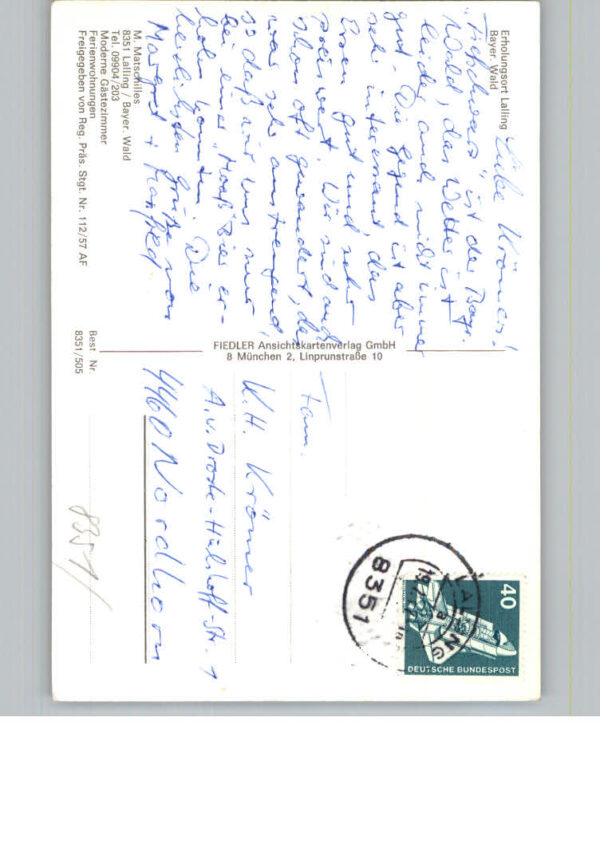 Erholungsort Lalling
Bayer. Wald
Liebe Krömers!
"Tiefschwarz" ist der Bayr.
Wald, das Wetter ist
leider auch nicht immer
gut. Die Gegend ist aber
sehr interessant, das
Essen gut und sehr
preiswert. Wir sind auch
schon oft gewandert, das
war sehr anstrengend,
so daß wir uns nur
bei einer "Maß" Bier er-
holen konnten. Die
herzlichsten Grüße von
Margret + Manfred
M. Matschilles
8351 Lalling / Bayer. Wald
Tel. 09904/203
Moderne Gästezimmer
Ferienwohnungen
Freigegeben von Reg. Präs. Stgt. Nr. 112/57 AF
Best Nr
8351/505
FIEDLER Ansichtskartenverlag GmbH
8 München 2, Linprunstraße 10
Fam.
K.H. Krömer
A.v. Droste-Hülshoff-Str. 1
4460 Nordhorn
8351/
LALLING
8351
40
DEUTSCHE BUNDESPOST